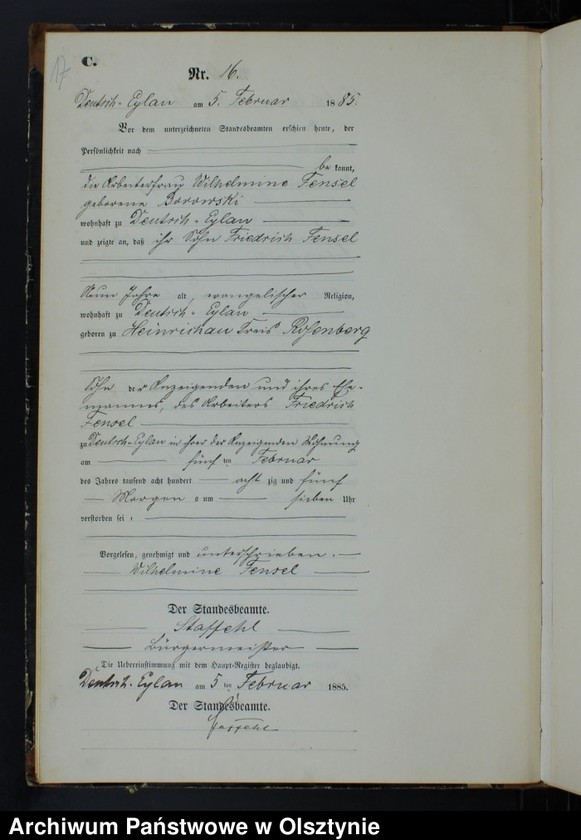 17
C.
Nr. 16.
Deutsch-Eylau am 5. Februar 1885.
Vor dem unterzeichneten Standesbeamten erschien heute, der
Persönlichkeit nach
be kannt,
die Arbeiterfrau Wilhelmine Fensel
geborene Borowski
wohnhaft zu Deutsch-Eylau
und zeigte an, daß ihr Sohn Friedrich Fensel
Neun Jahre alt, evangelischer Religion,
wohnhaft zu Deutsch-Eylau
geboren zu Heinrichau Kreis Rosenberg
Sohn der Anzeigenden und ihres Ehe-
mannes, des Arbeiters Friedrich
Fensel
zu Deutsch-Eylau in ihrer der Anzeigenden Wohnung
am fünf ten Februar
des Jahres tausend acht hundert acht zig und fünf
Morgens um sieben Uhr
verstorben sei
Vorgelesen, genehmigt und unterschrieben.
Wilhelmine Fensel
Der Standesbeamte.
Staffehl
Bürgermeister
Die Uebereinstimmung mit dem Haupt-Register beglaubigt.
Deutsch-Eylau am 5 ten Februar 1885.
Der Standesbeamte.
Staffehl
Archiwum Państwowe w Olsztynie